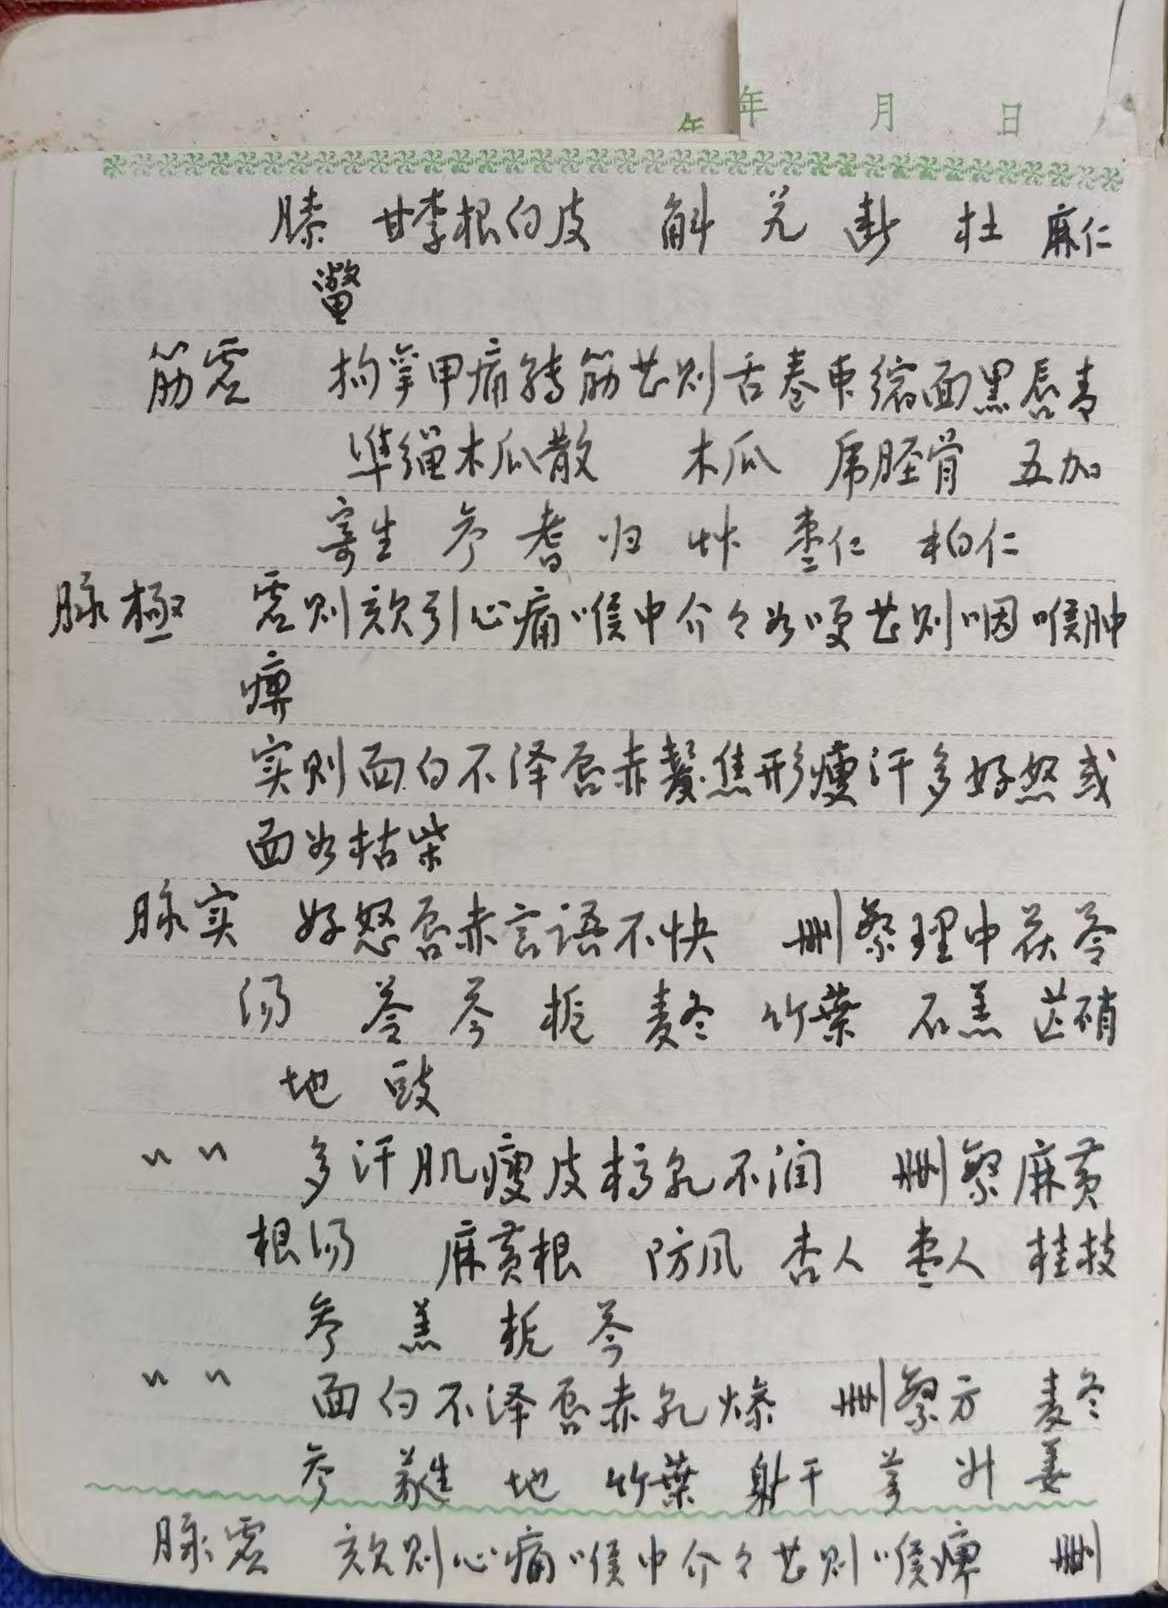 年 月 日
年
膝 甘李根白皮 斛 羌 断 杜 麻仁
筋虚 拘挛甲痛转筋甚则舌卷束缩面黑唇青
準绳木瓜散 木瓜 虎胫骨 五加
寄生 参 耆 归 艸 枣仁 柏仁
脉極 虚则欬引心痛喉中介々如哽甚则咽喉肿
痺
实则面白不泽唇赤鬓焦形瘦汗多好怒或
面如枯柴
脉实 好怒唇赤言语不快 删繁理中茯苓
汤 苓 参 栀 麦冬 竹葉 石羔 芒硝
地 豉
〃 〃 多汗肌瘦皮槁乳不润 删繁麻黄
根汤 麻黄根 防风 杏人 枣人 桂枝
参 羔 栀 苓
〃 〃 面白不泽唇赤乳燥 删繁方 麦冬
参 生 地 竹葉 射干 苓 升 姜
脉虚 欬则心痛喉中介々甚则喉痺 删